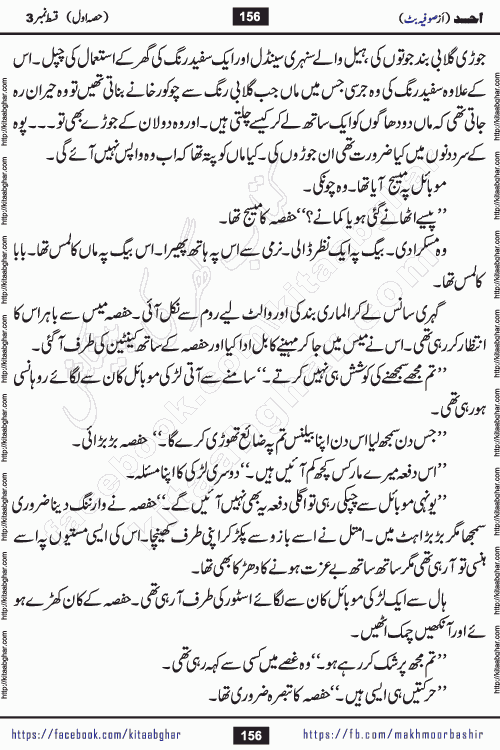 احد (از صوفیہ بٹ) 156 (حصہ اول) قسط نمبر 3
جوڑی گلابی بند جوتوں کی ہیل والے سنہری سینڈل اور ایک سفید رنگ کی گھر کے استعمال کی چپل۔ اس
کے علاوہ سفید رنگ کی وہ جرسی جس میں ماں جب گلابی رنگ سے چوکور خانے بناتی تھیں تو وہ حیران رہ
جاتی تھی کہ ماں دو دھاگوں کو ایک ساتھ لے کر کیسے چلتی ہیں۔ اور وہ دو لان کے جوڑے بھی تو۔۔۔ پوہ
کے سرد دنوں میں کیا ضرورت تھی ان جوڑوں کی۔ کیا ماں کو پتہ تھا کہ اب وہ واپس نہیں آئے گی۔
موبائل پہ میسج آیا تھا۔ وہ چونکی۔
’’پیسے اٹھانے گئی ہو یا کمانے؟‘‘ حفصہ کا میسج تھا۔
وہ مسکرا دی۔ بیگ پہ ایک نظر ڈالی۔ نرمی سے اس پہ ہاتھ پھیرا۔ اس بیگ پہ ماں کا لمس تھا۔ بابا
کا لمس تھا۔
گہری سانس لے کر الماری بند کی اور والٹ لیے روم سے نکل آئی۔ حفصہ میس سے باہر اس کا
انتظار کر رہی تھی۔ اس نے میس میں جا کر مہینے کا بل ادا کیا اور حفصہ کے ساتھ کینٹین کی طرف آ گئی۔
’’تم مجھے سمجھنے کی کوشش ہی نہیں کرتے۔‘‘ سامنے سے آتی لڑکی موبائل کان سے لگائے روہانسی
ہو رہی تھی۔
’’جس دن سمجھ لیا اس دن اپنا بیلنس تم پہ ضائع تھوڑی کرے گا۔‘‘ حفصہ بڑبڑائی۔
’’اس دفعہ میرے مارکس کچھ کم آئیں ہیں۔‘‘ دوسری لڑکی کا اپنا مسئلہ۔
’’یونہی موبائل سے چپکی رہی تو اگلی دفعہ یہ بھی نہیں آئیں گے۔‘‘ حفصہ نے وارننگ دینا ضروری
سمجھا مگر بڑبڑاہٹ میں۔ امتل نے اسے بازو سے پکڑ کر اپنی طرف کھینچا۔ اس کی ایسی مستیوں پہ اسے
ہنسی تو آ رہی تھی مگر ساتھ ساتھ بے عزت ہونے کا دھڑکا بھی تھا۔
ہال سے ایک لڑکی موبائل کان سے لگائے اسٹور کی طرف آ رہی تھی۔ حفصہ کے کان کھڑے ہو
ئے اور آنکھیں چمک اٹھیں۔
’’تم مجھ پر شک کر رہے ہو۔‘‘ وہ غصے میں کسی سے کہہ رہی تھی۔
’’حرکتیں ہی ایسی ہیں۔‘‘ حفصہ کا تبصرہ ضروری تھا۔
https://facebook.com/kitaabghar 156 https://fb.com/makhmoorbashir
http://kitaabghar.com
http://kitaabghar.com
facebook.com/kitaabghar
kitaabghar.com